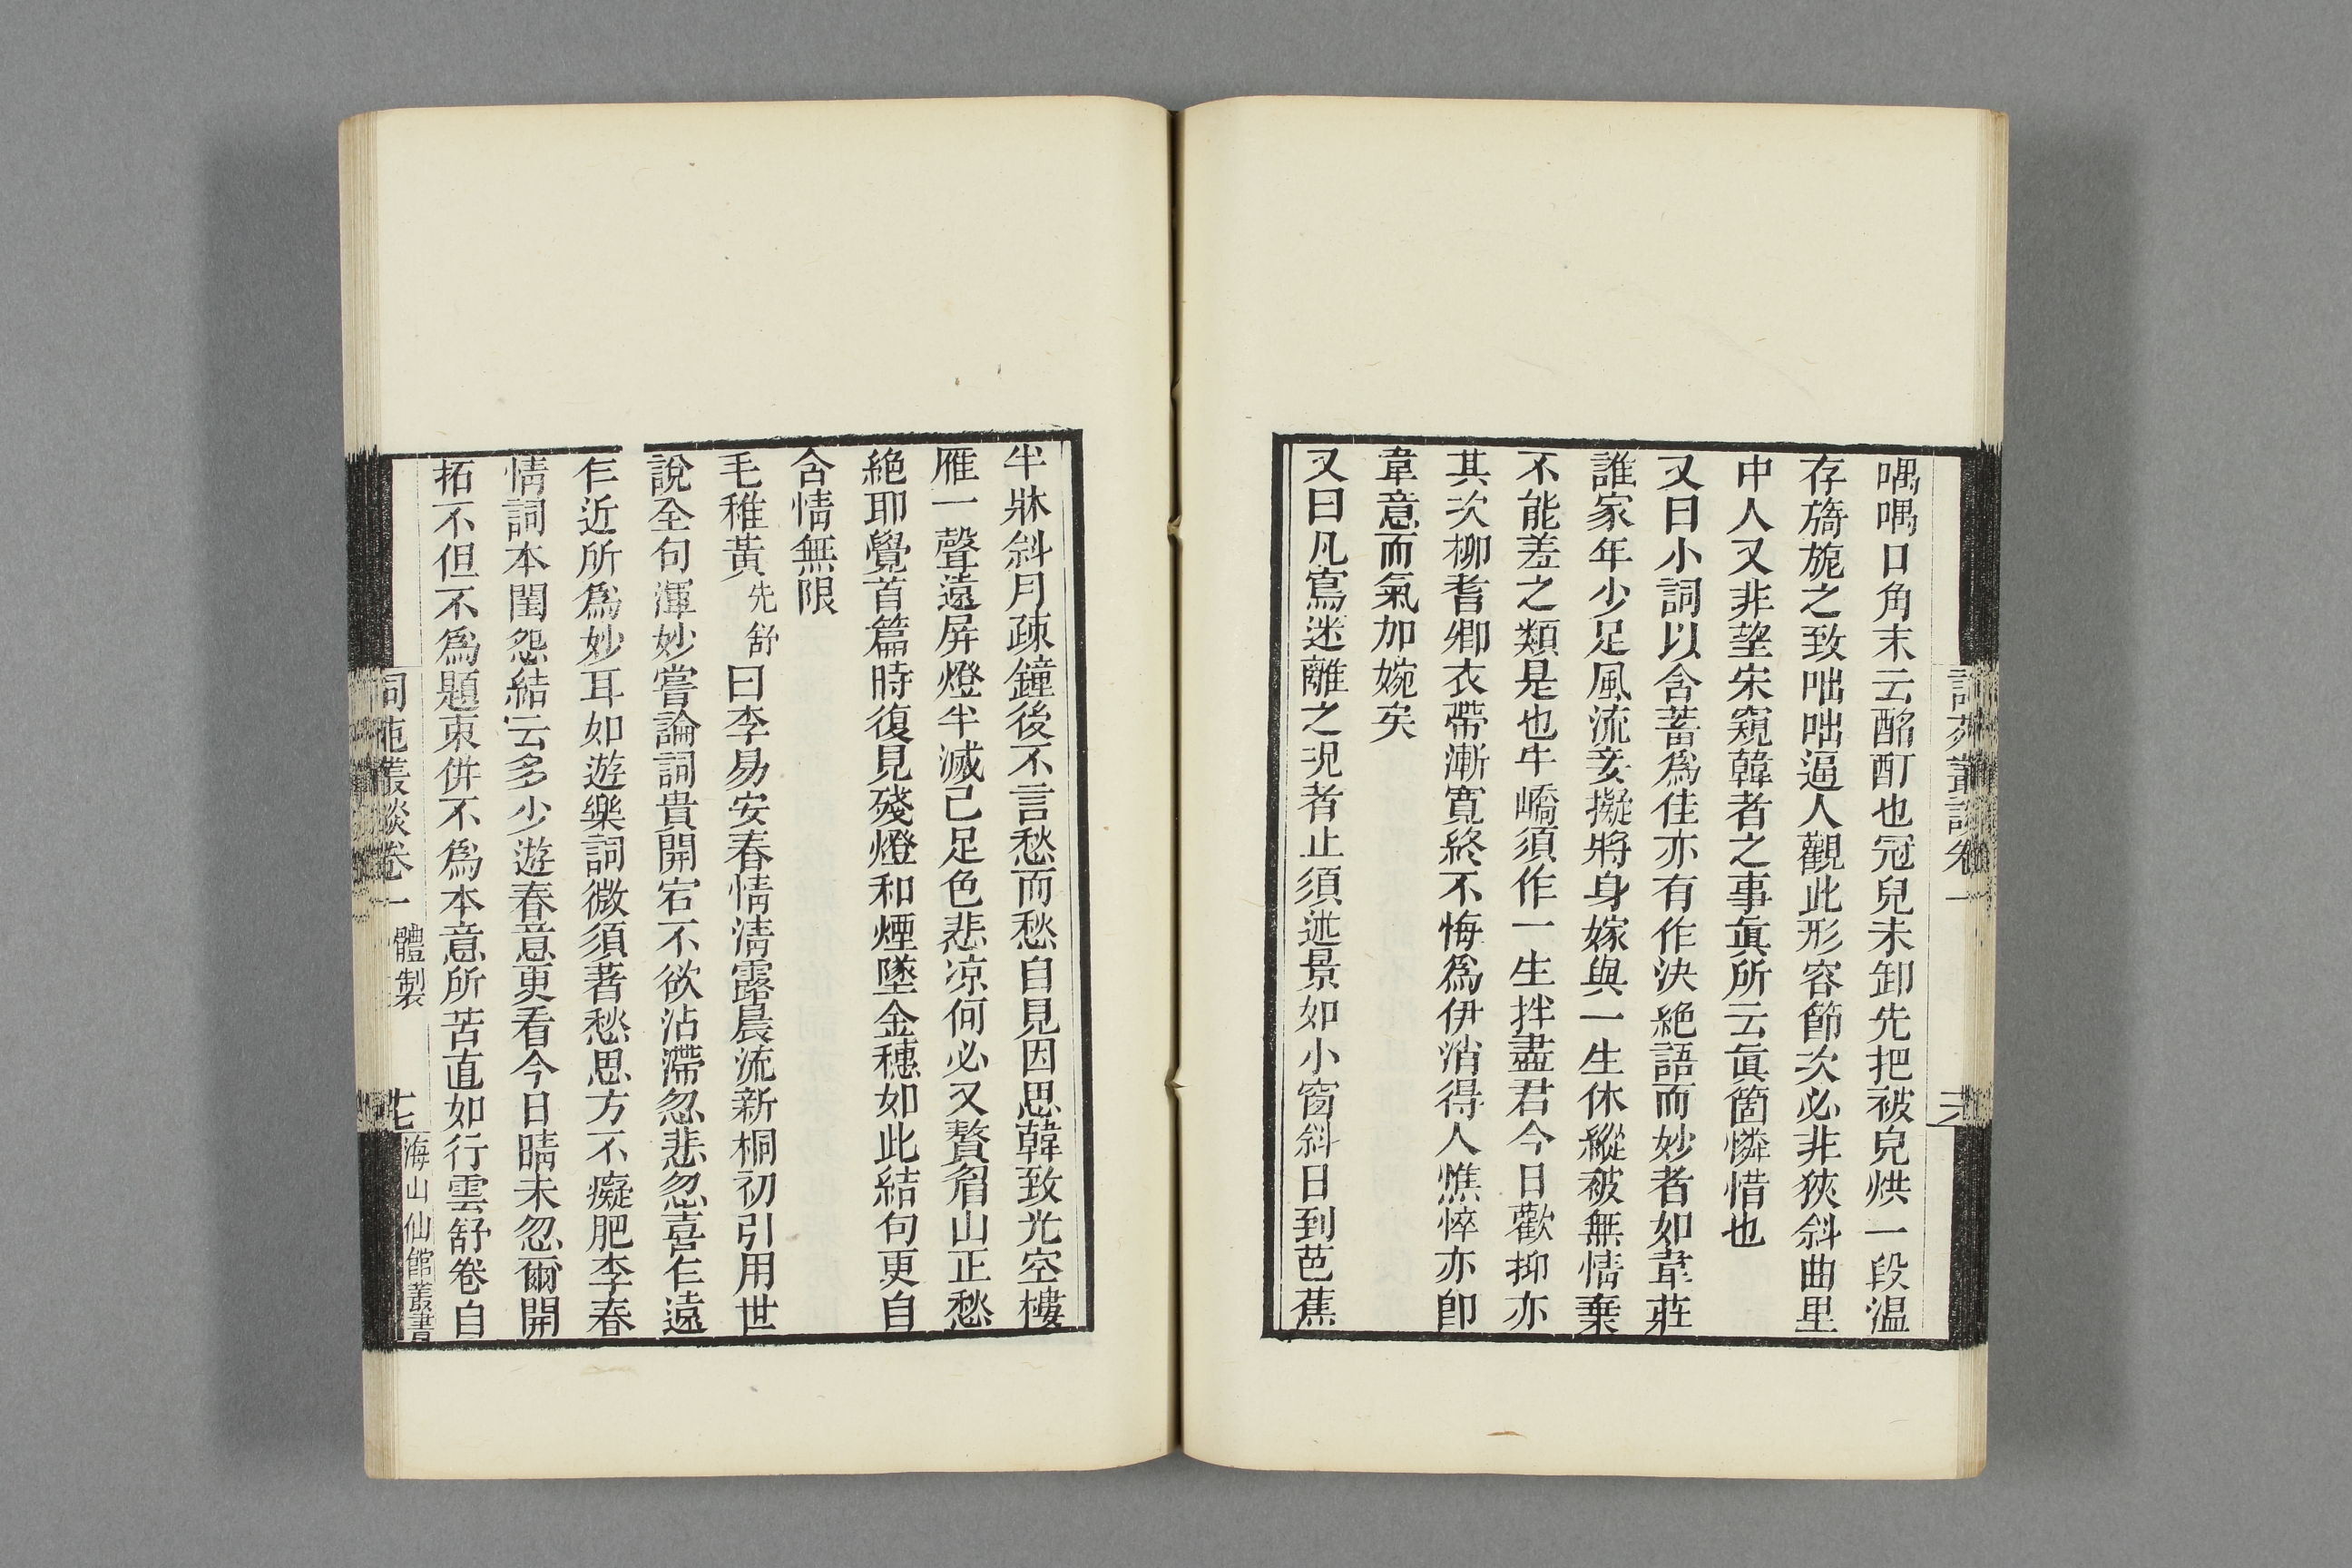 喁喁口角末云酩酊也冠兒未卸先把被兒烘一段温
存旖旎之致咄咄逼人觀此形容節次必非狹斜曲里
中人又非望宋窺韓者之事眞所云眞箇憐惜也
又曰小詞以含蓄為佳亦有作決絕語而妙者如韋莊
誰家年少足風流妾擬將身嫁與一生休縱被無情棄
不能羞之類是也牛嶠須作一生拌盡君今日歡抑亦
其次柳耆卿衣帶漸寬終不悔爲伊消得人憔悴亦卽
韋意而氣加婉矣
又曰凡寫迷離之況者止須述景如小窗斜日到芭蕉
半牀斜月疎鐘後不言愁而愁自見因思韓致光空樓
雁一聲遠屏燈半滅己足色悲凉何必又贅眉山正愁
絕耶覺首篇時復見殘燈和煙墜金穗如此結句更自
含情無限
毛稚黃先舒曰李易安春情淸露晨流新桐初引用世
說全句渾妙嘗論詞貴開宕不欲沾滯忽悲忽喜乍遠
乍近所爲妙耳如遊樂詞微須著愁思方不癡肥李春
情詞本閨怨結云多少遊春意更看今日晴未忽爾開
拓不但不爲題束併不爲本意所苦直如行雲舒卷自
詞苑叢談卷一 體製 海山仙館叢書